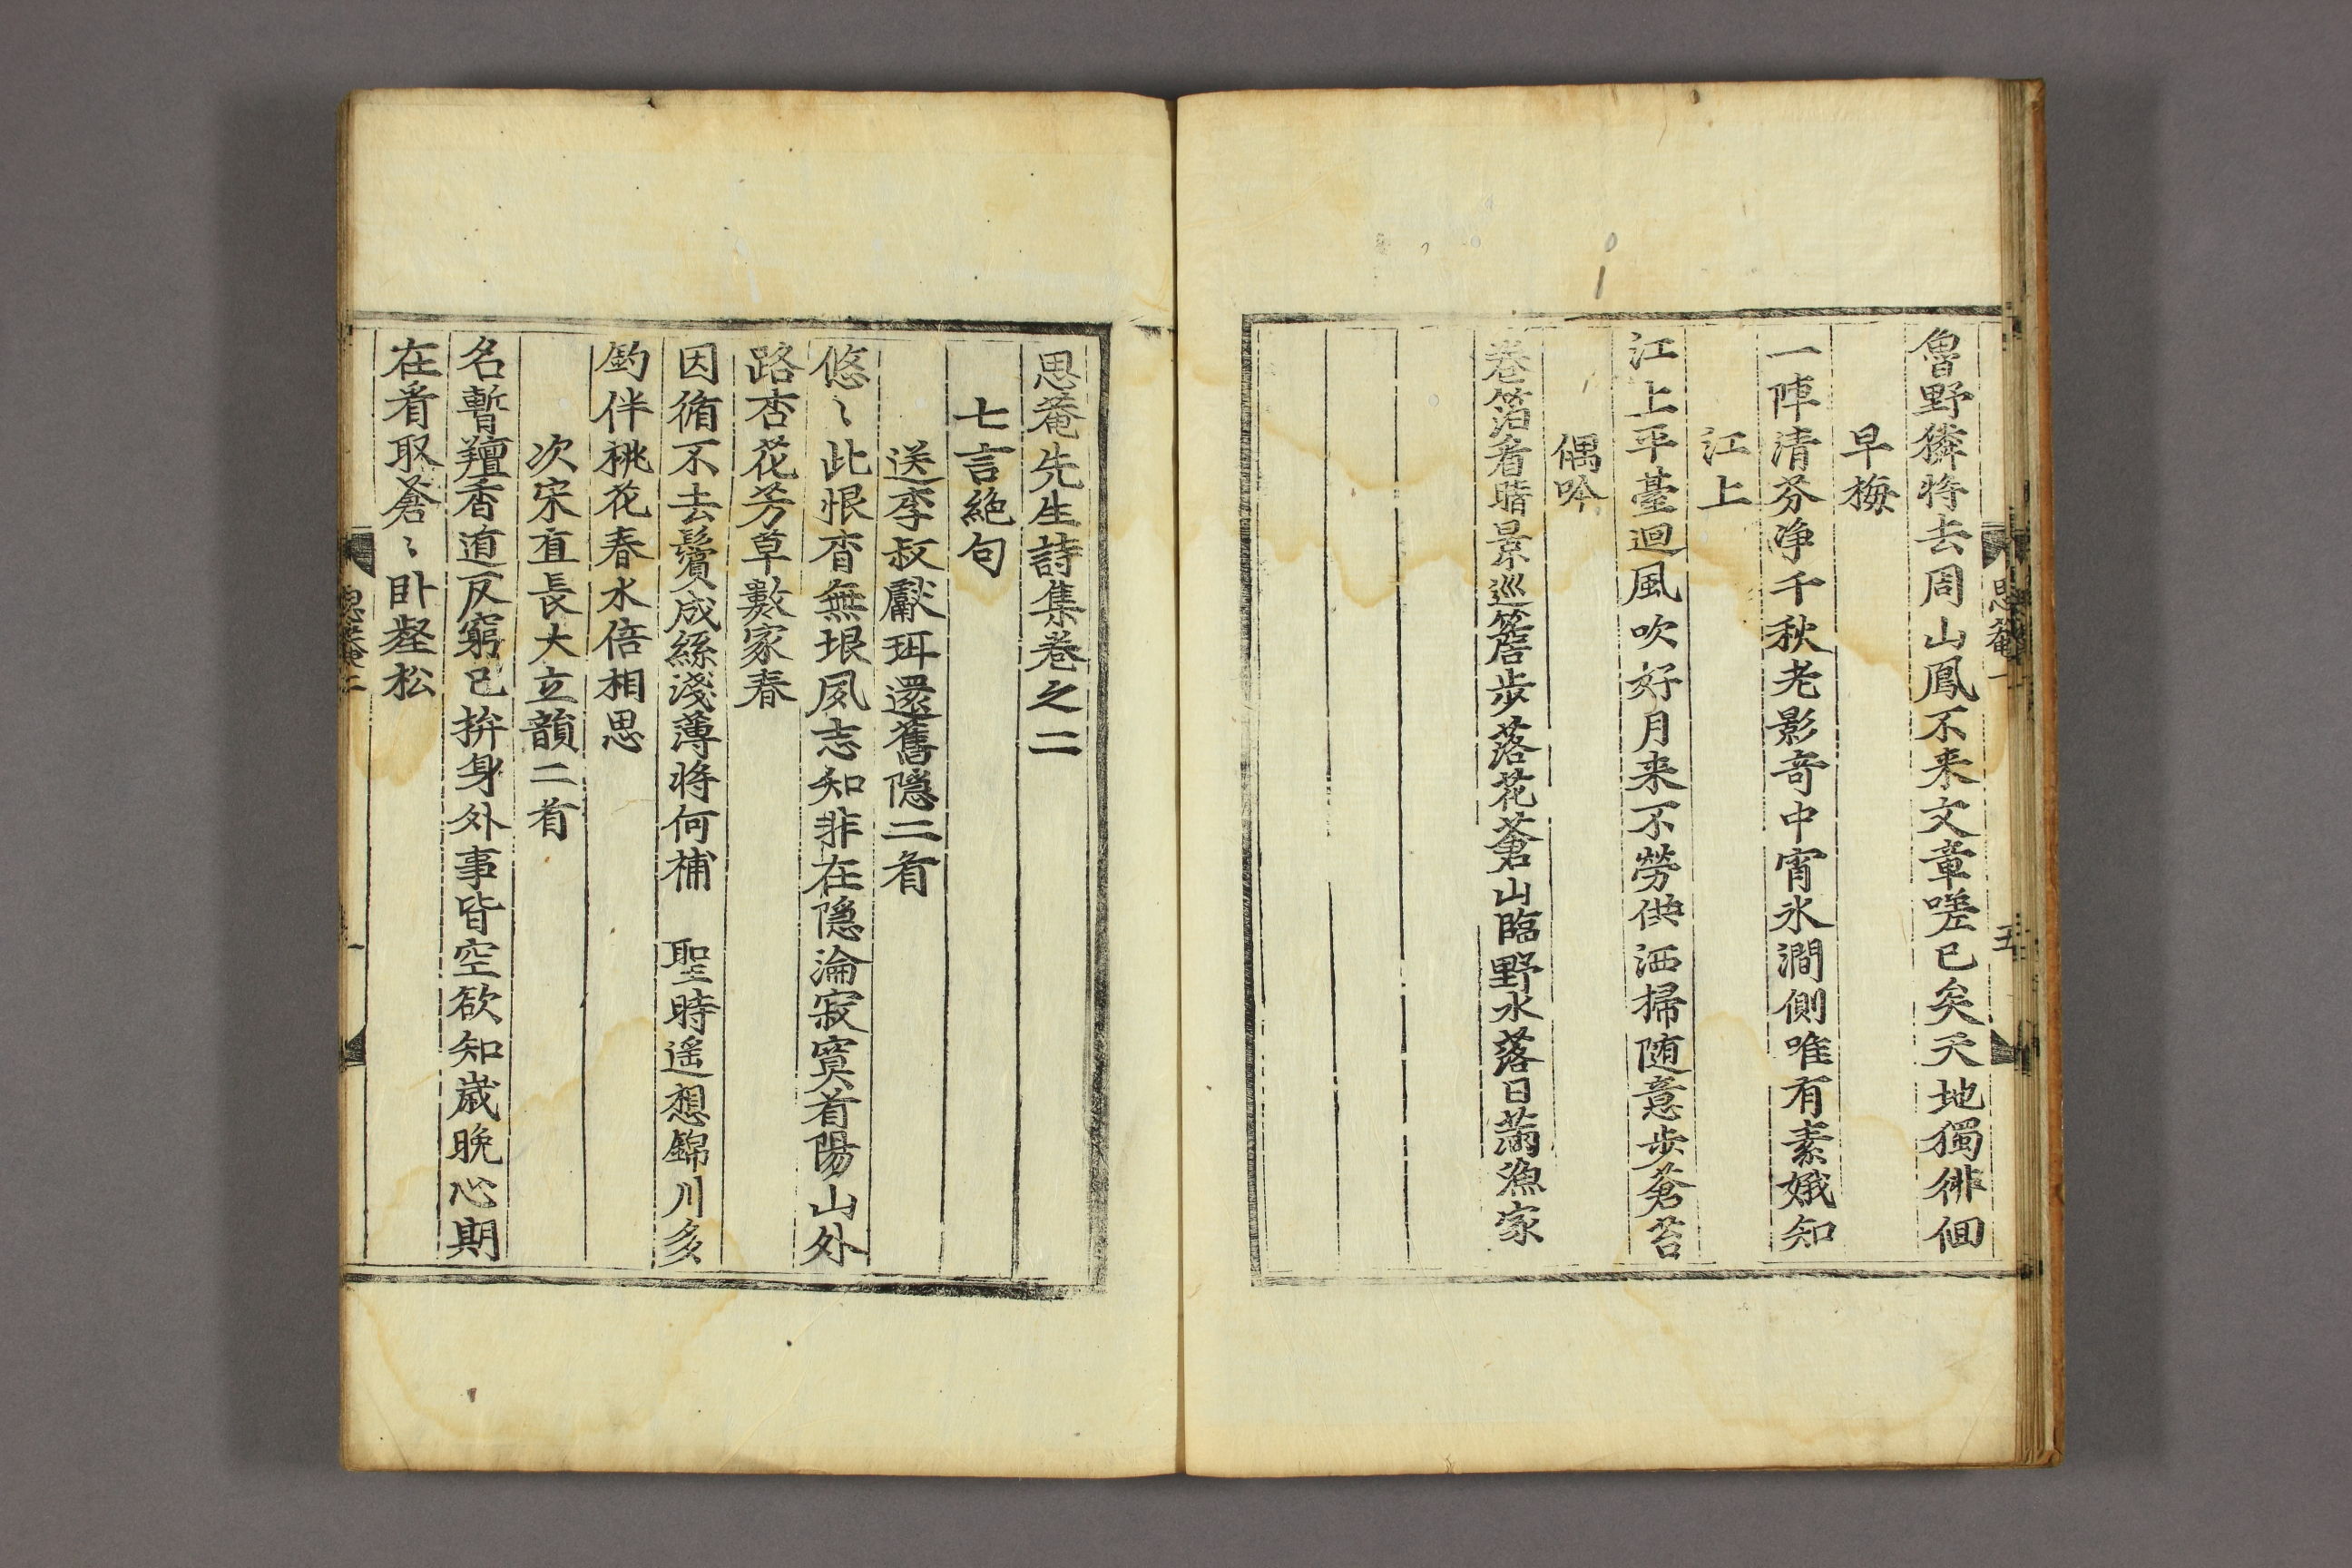 魯野獜將去周山鳳不来文章嗟已矣天地獨徘徊
早梅
一陣清芬淨千秋老影竒中宵氷澗側唯有素娥知
江上
江上平臺迥風吹好月来不勞供洒掃随意步蒼苔
偶吟
巻箔看晴景巡簷步落花蒼山臨野水落日滿漁家
思菴一
五
思菴先生詩集巻之二
七言絶句
送李叔獻珥還舊隠二首
悠〻此恨杳無垠夙志知非在隠淪寂寞首陽山外
路杏花芳草數家春
因循不去鬢成絲淺薄將何補 聖時遥想錦川多
釣伴桃花春水倍相思
次宋直長大立韻二首
名暫羶香道反窮已拚身外事皆空欲知歲晩心期
在看取蒼〻卧壑松
一